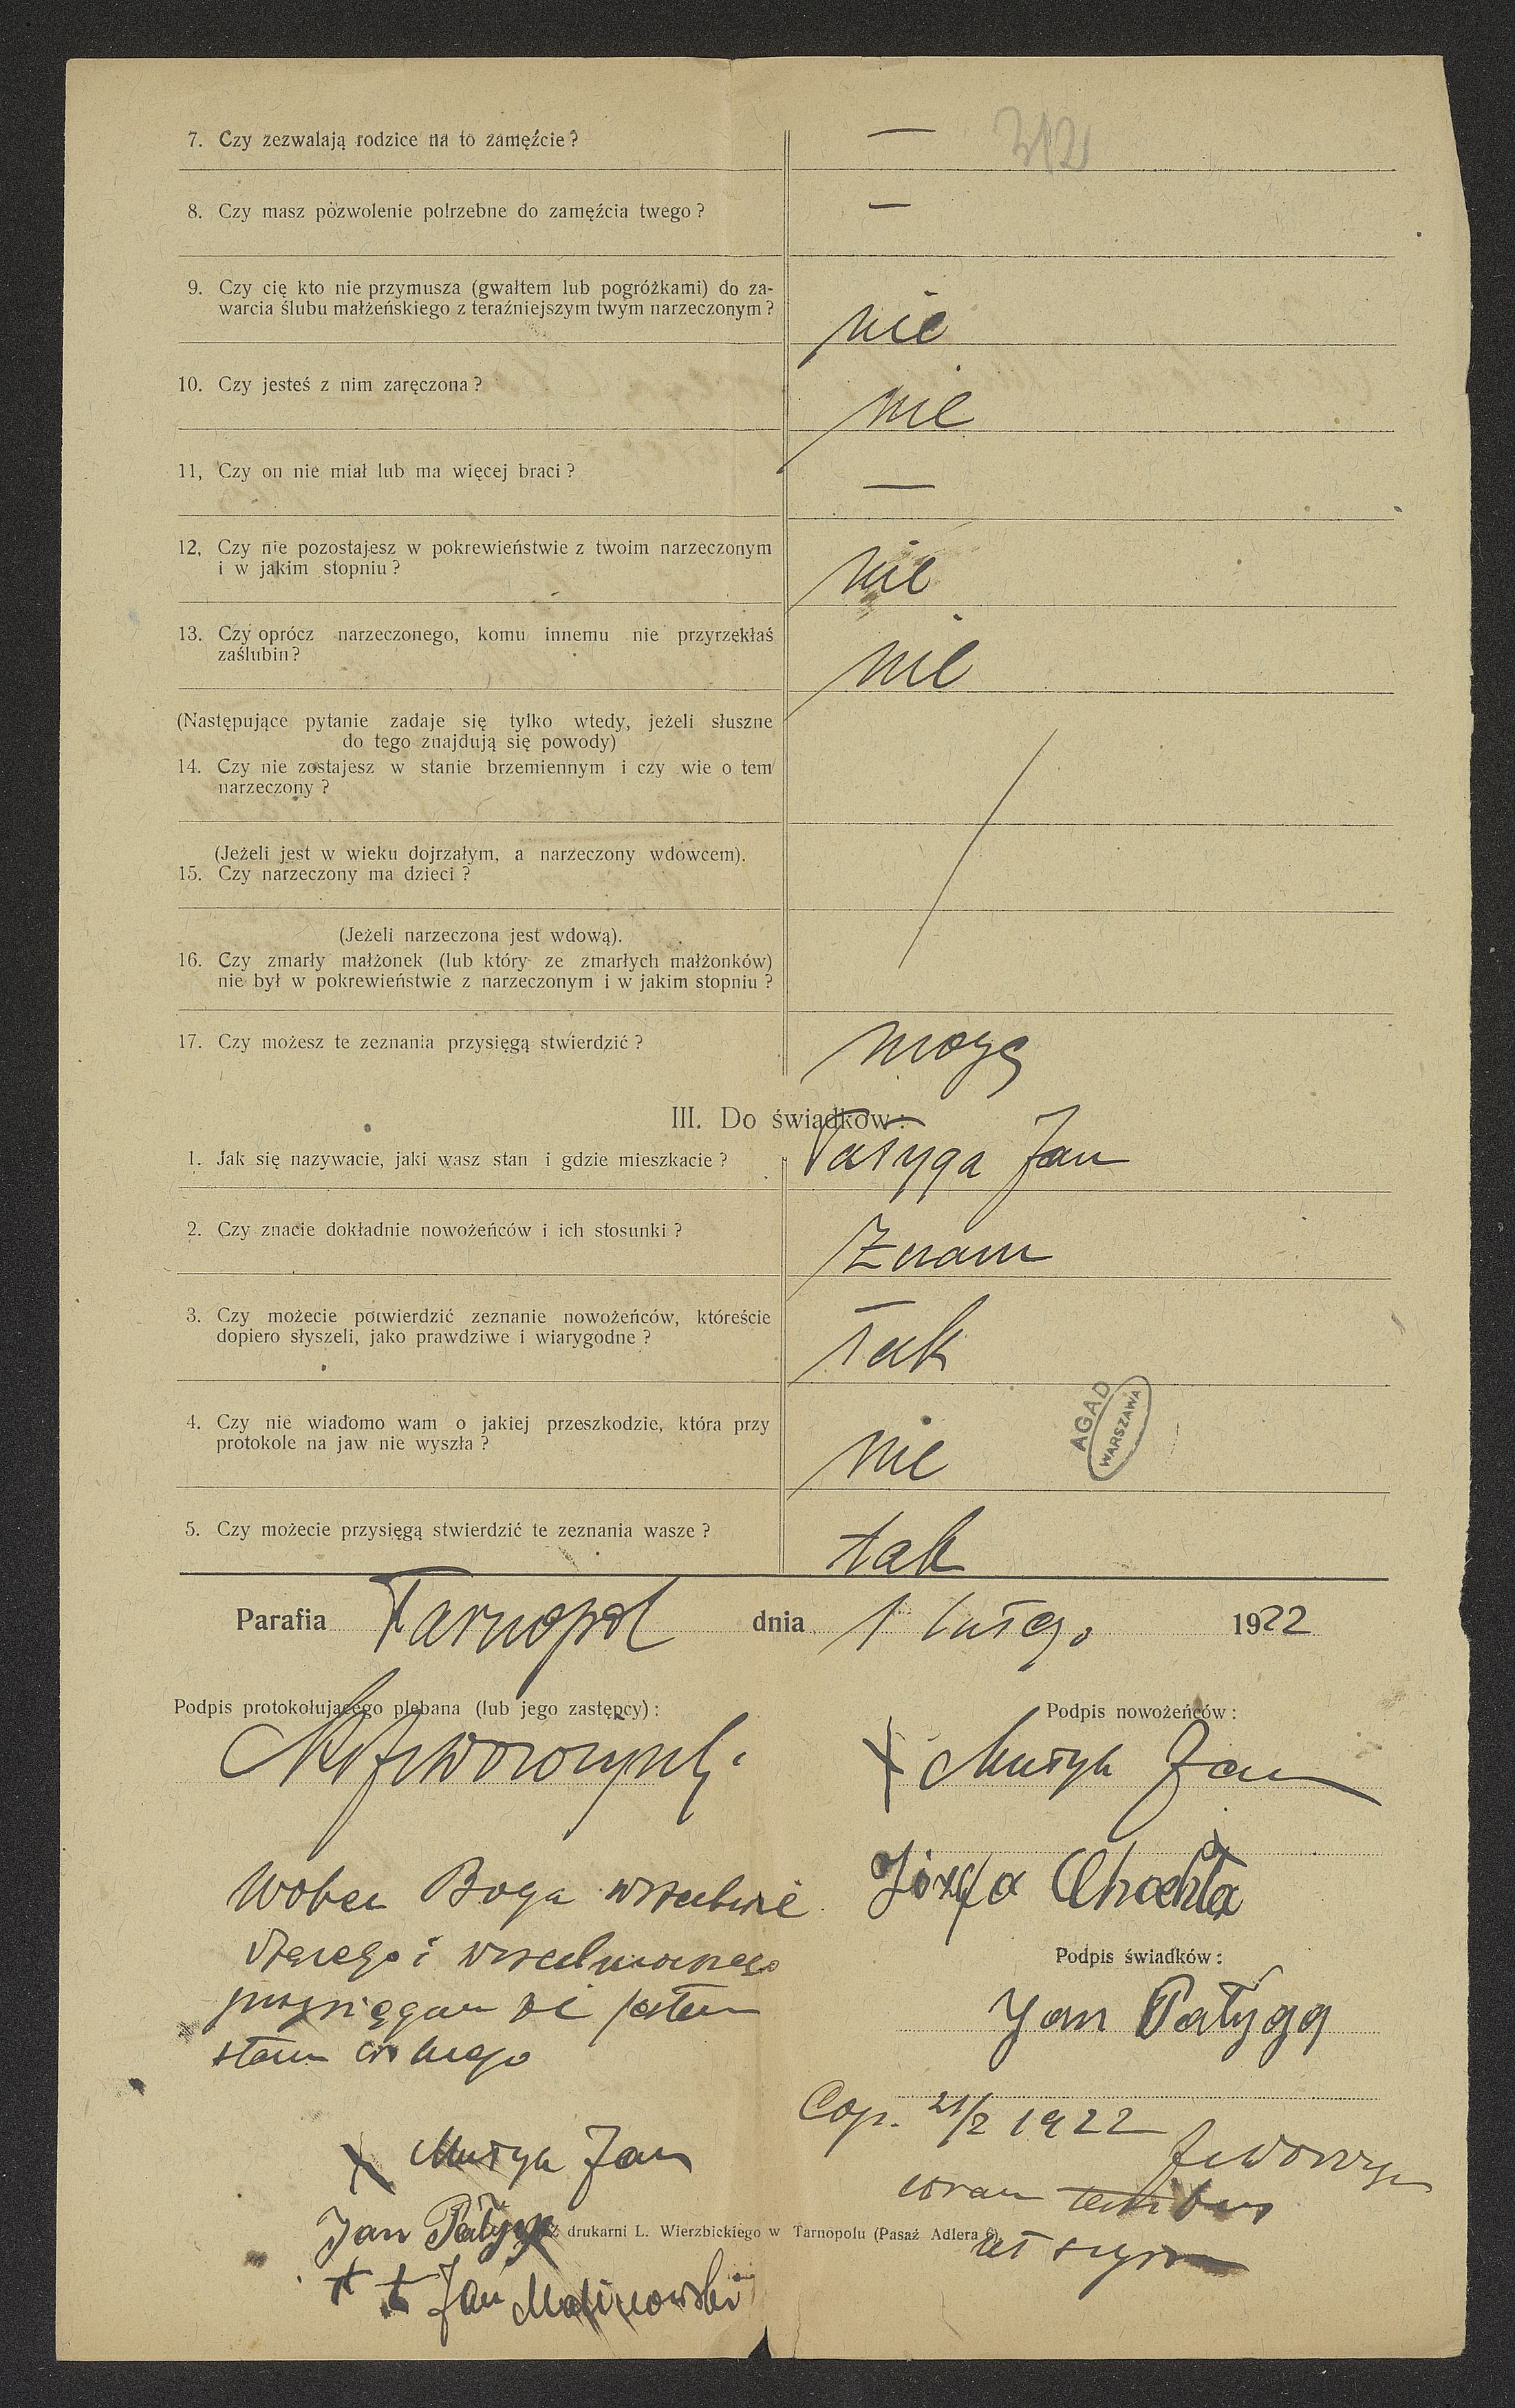 312
7. Czy zezwalają rodzice na to zamęźcie? —
8. Czy masz pozwolenie polrzebne do zamęźcia twego? —
9. Czy cię kto nie przymusza (gwałtem lub pogróżkami) do za-
warcia ślubu małżeńskiego z teraźniejszym twym narzeczonym? nie
10. Czy jesteś z nim zaręczona? nie
11, Czy on nie miał lub ma więcej braci? —
12, Czy nie pozostajesz w pokrewieństwie z twoim narzeczonym
i w jakim stopniu? nie
13. Czy oprócz narzeczonego, komu innemu nie przyrzekłaś
zaślubin? nie
(Następujące pytanie zadaje się tylko wtedy, jeżeli słuszne
do tego znajdują się powody)
14. Czy nie zostajesz w stanie brzemiennym i czy wie o tem
narzeczony?
(Jeżeli jest w wieku dojrzałym, a narzeczony wdowcem).
15. Czy narzeczony ma dzieci?
(Jeżeli narzeczona jest wdową).
16. Czy zmarły małżonek (lub który ze zmarłych małżonków)
nie był w pokrewieństwie z narzeczonym i w jakim stopniu?
17. Czy możesz te zeznania przysięgą stwierdzić? mogę
III. Do świadków:
1. Jak się nazywacie, jaki wasz stan i gdzie mieszkacie? Pałyga Jan
2. Czy znacie dokładnie nowożeńców i ich stosunki? Znam
3. Czy możecie potwierdzić zeznanie nowożeńców, któreście
dopiero słyszeli, jako prawdziwe i wiarygodne? Tak
4. Czy nie wiadomo wam o jakiej przeszkodzie, która przy
protokole na jaw nie wyszła? nie
AGAD
WARSZAWA
5. Czy możecie przysięgą stwierdzić te zeznania wasze? tak
Parafia Tarnopol dnia 1 lutego 1922
Podpis protokołującego plebana (lub jego zastępcy):
Podpis nowożeńców:
Mutyk Jan
Józefa Chochła
Wobec Boga wszechwie
dzącego i wszechmocnego
przysięgam że jestem
stanu wolnego
Podpis świadków:
Jan Pałyga
Cop. 21/2 1922
coram testibus
ut supra
Mutyk Jan
Jan Pałyga
Z drukarni L. Wierzbickiego w Tarnopolu (Pasaż Adlera 6).
Jan Malinowski